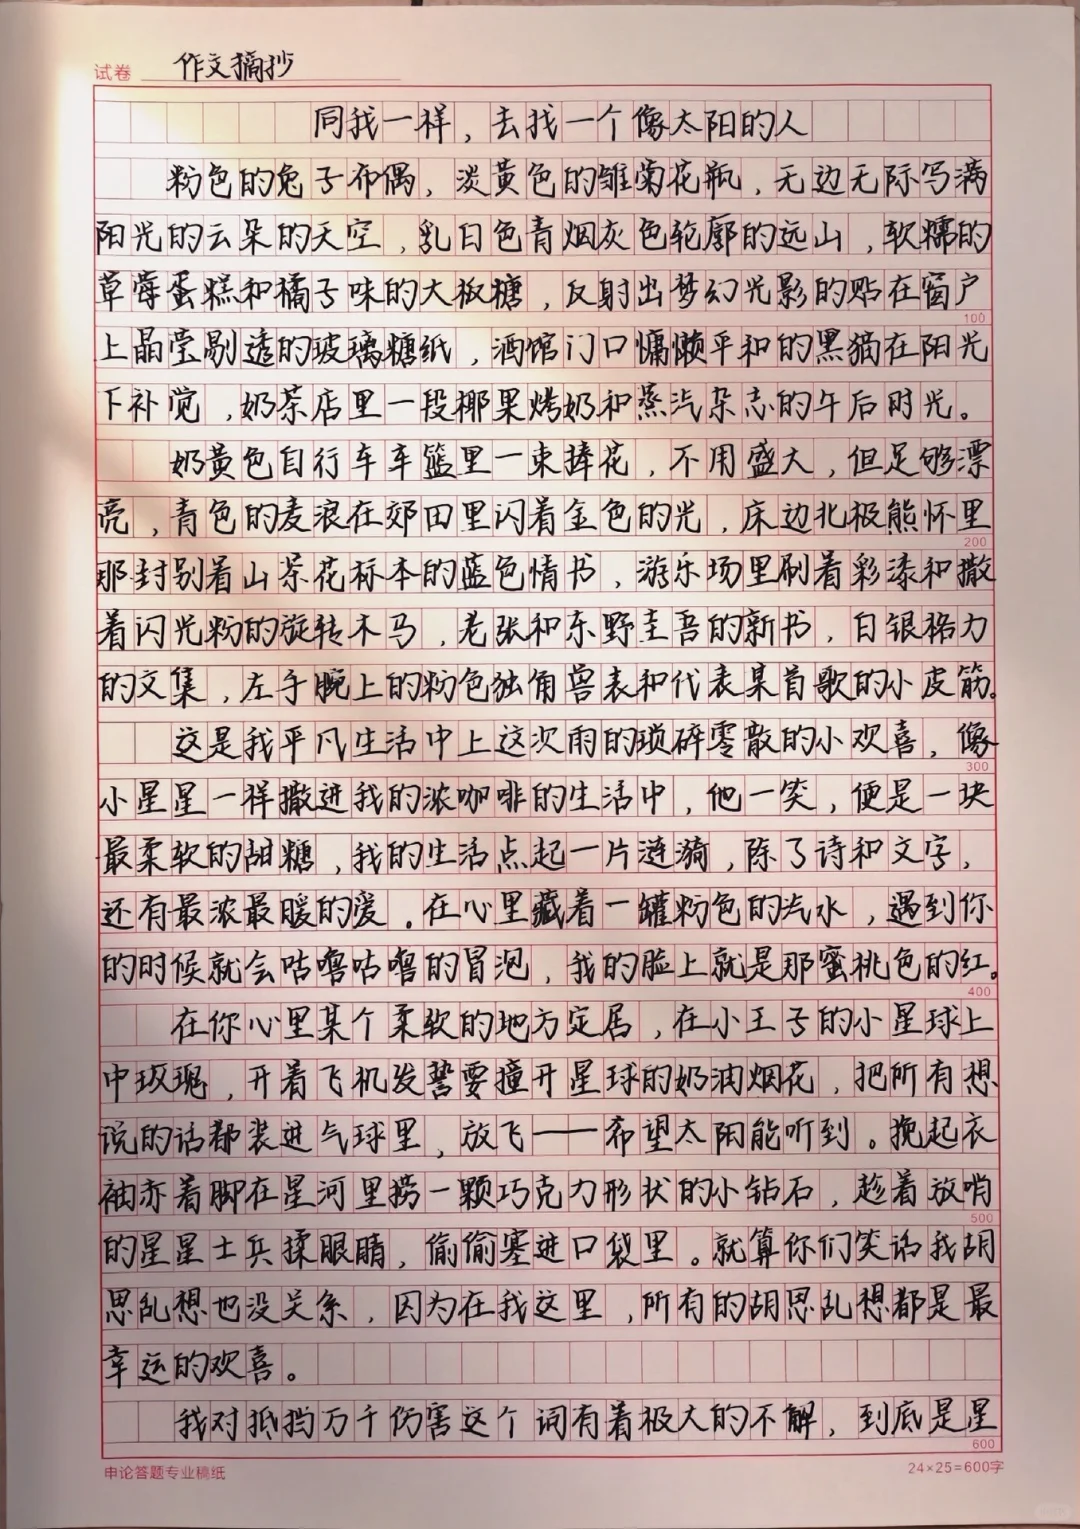 试卷 作文摘抄
同我一样，去找一个像太阳的人
粉色的兔子布偶，淡黄色的雏菊花瓶，无边无际写满
阳光的云朵的天空，乳白色青烟灰色轮廓的远山，软糯的
草莓蛋糕和橘子味的大板糖，反射出梦幻光影的贴在窗户
100
上晶莹剔透的玻璃糖纸，酒馆门口慵懒平和的黑猫在阳光
下补觉，奶茶店里一段椰果烤奶和蒸汽杂志的午后时光。
奶黄色自行车车篮里一束捧花，不用盛大，但足够漂
亮，青色的麦浪在郊田里闪着金色的光，床边北极熊怀里
200
那封别着山茶花标本的蓝色情书，游乐场里刷着彩漆和撒
着闪光粉的旋转木马，老张和东野圭吾的新书，白银格力
的文集，左手腕上的粉色独角兽表和代表某首歌的小皮筋。
这是我平凡生活中上这次雨的琐碎零散的小欢喜，像
300
小星星一样撒进我的浓咖啡的生活中，他一笑，便是一块
最柔软的甜糖，我的生活点起一片涟漪，除了诗和文字，
还有最浓最暖的爱。在心里藏着一罐粉色的汽水，遇到你
的时候就会咕噜咕噜的冒泡，我的脸上就是那蜜桃色的红。
400
在你心里某个柔软的地方定居，在小王子的小星球上
中玫瑰，开着飞机发誓要撞开星球的奶油烟花，把所有想
说的话都装进气球里，放飞——希望太阳能听到。挽起衣
袖亦着脚在星河里捞一颗巧克力形状的小钻石，趁着放哨
500
的星星士兵揉眼睛，偷偷塞进口袋里。就算你们笑话我胡
思乱想也没关系，因为在我这里，所有的胡思乱想都是最
幸运的欢喜。
我对抵挡万千伤害这个词有着极大的不解，到底是星
600
申论答题专业稿纸 24×25=600字